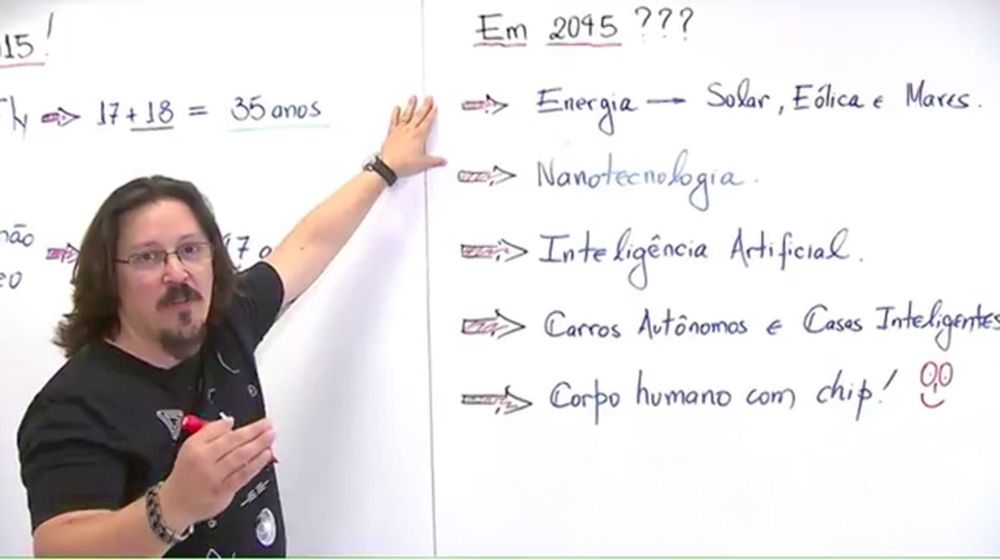 015!
17+18 = 35 anos
não
17
Em 2045 ???
Energia → Solar, Eólica e Mares.
Nanotecnologia.
Inteligência Artificial.
Carros Autônomos e Casas Inteligentes
Corpo humano com chip!